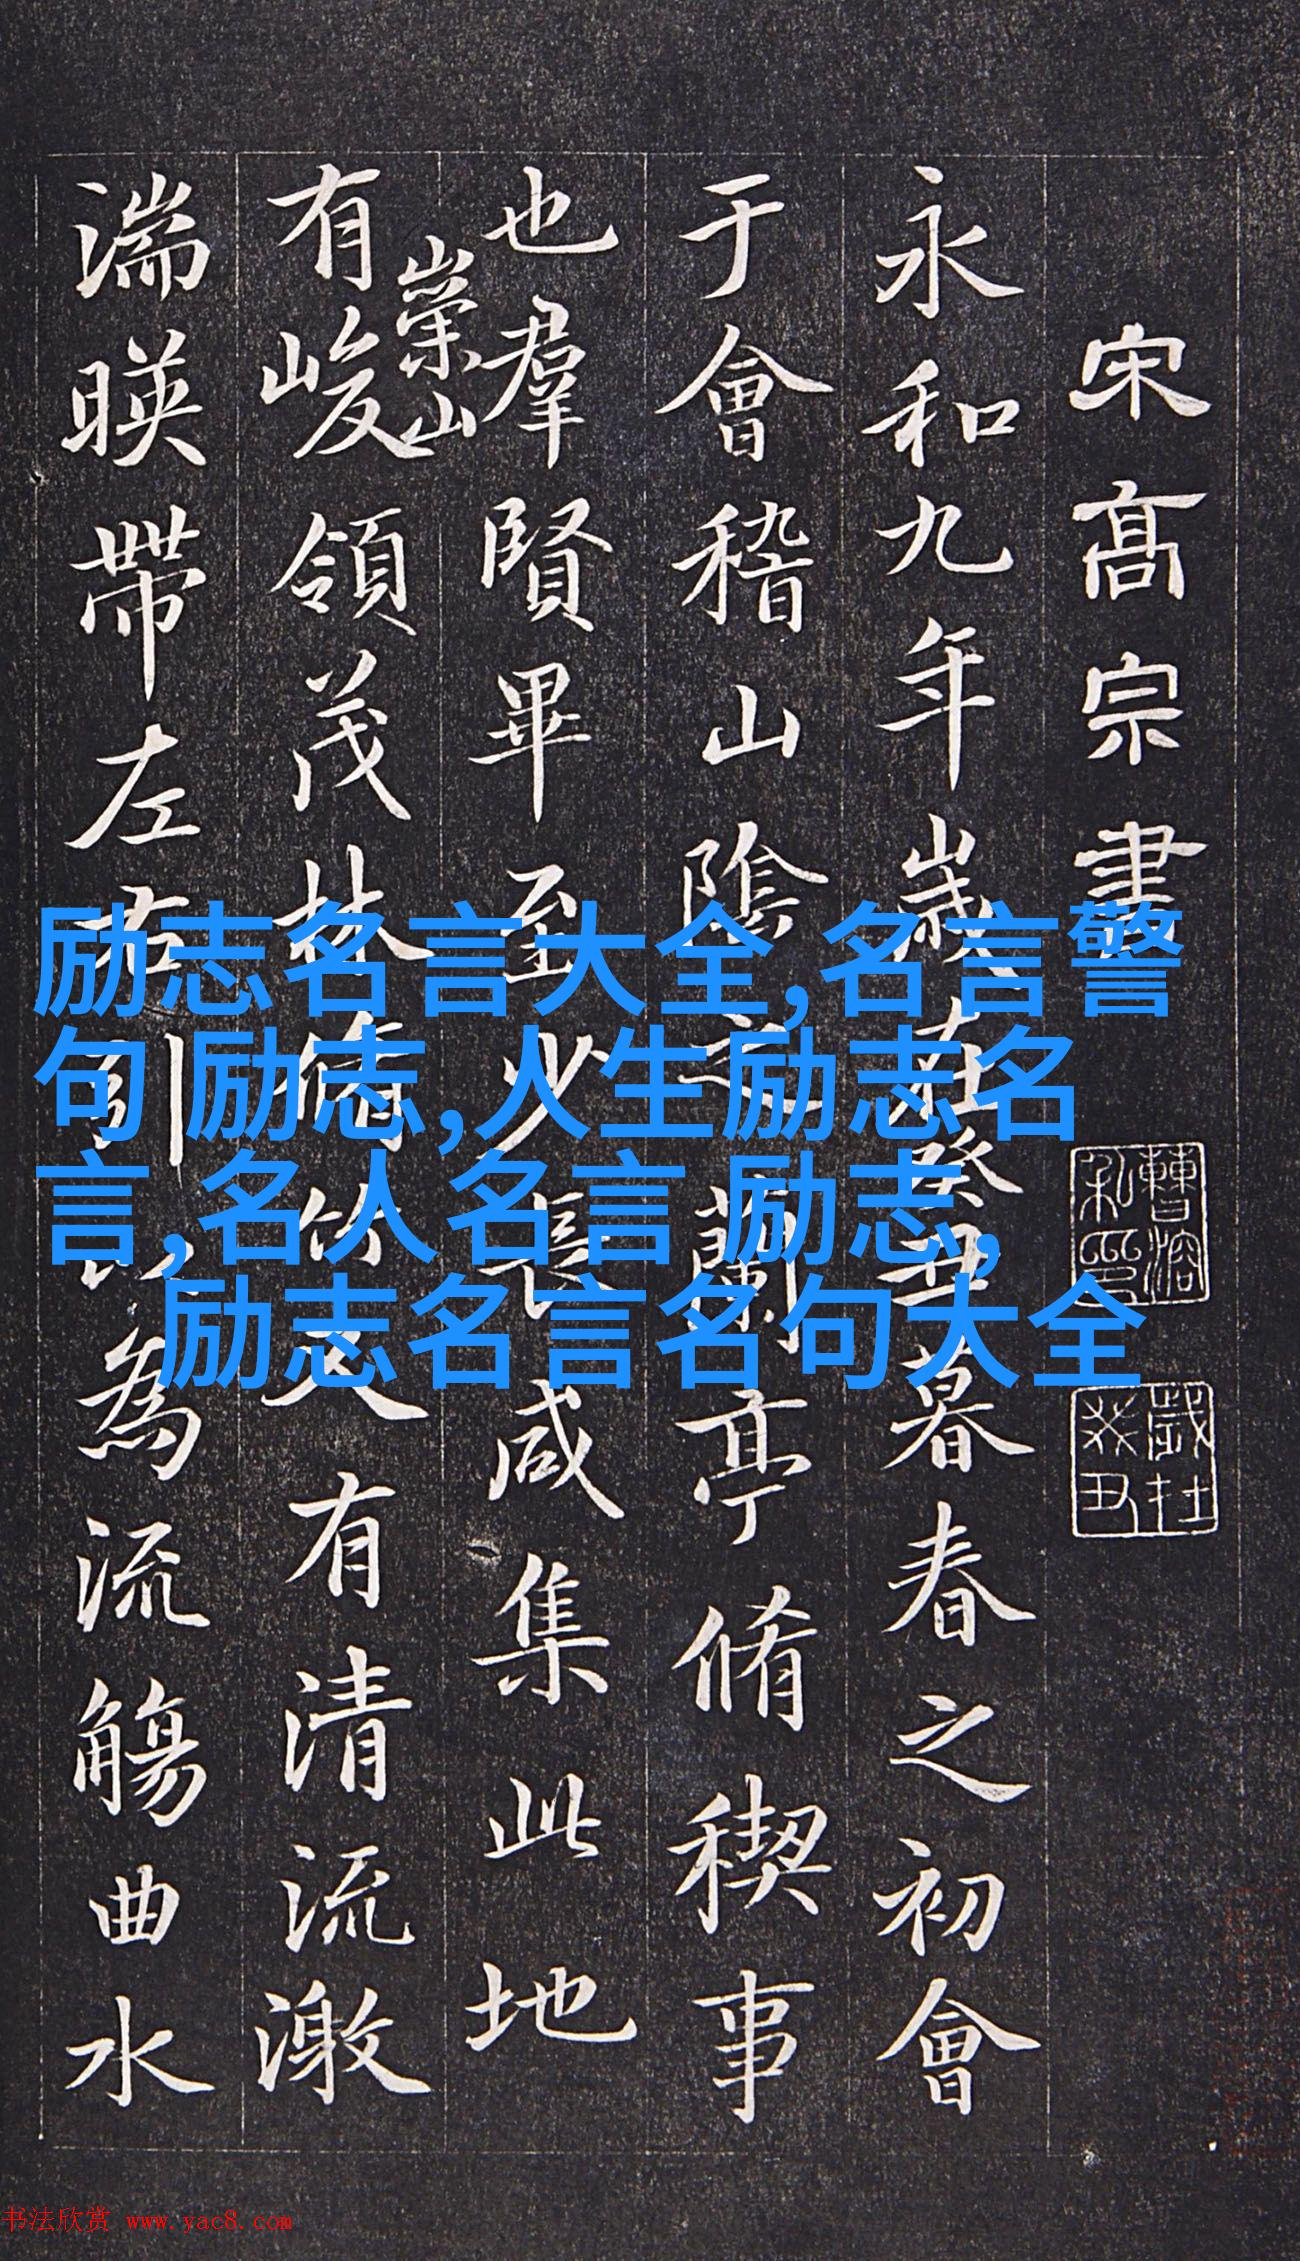 宋髙宗書
永和九年歲在癸丑暮春之初會
于會稽山陰之蘭亭脩稧事
也羣賢畢至少長咸集此地
有崇山峻領茂林脩竹又有清流激
湍暎帶左右引以為流觴曲水
曹溶私印
歲在癸丑
励志名言大全,名言警
句 励志,人生励志名
言,名人名言 励志,
励志名言名句大全
书法欣赏 www.yac8.com